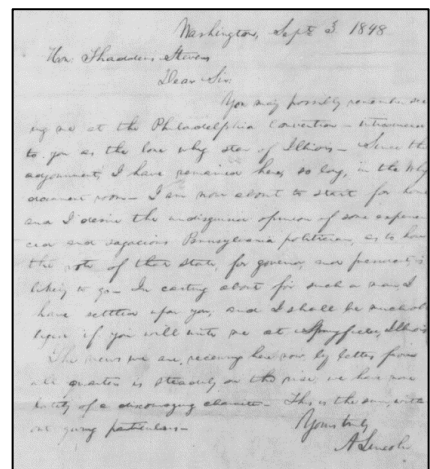 Washington, Sept 3. 1848
Hon: Thaddeus Stevens
Dear Sir:
You may possibly remember see
ing me at the Philadelphia Convention – introduced
to you as the lone whig star of Illinois – Since the
adjournment, I have remained here, so long, in the Whig
document room – I am now about to start for home
and I desire the undisguised opinion of some experien
ced and sagacious Pennsylvania politician, as to how
the vote of that state, for governor, and president, is
likely to go – In casting about for such a man, I
have settled upon you; and I shall be much ob
liged if you will write me at Springfield, Illinois
The news we are receiving here now, by letters from
all quarters is steadily on the rise; we have none
lately of a discouraging character – This is the sum, with
out giving particulars –
Yours truly
A Lincoln